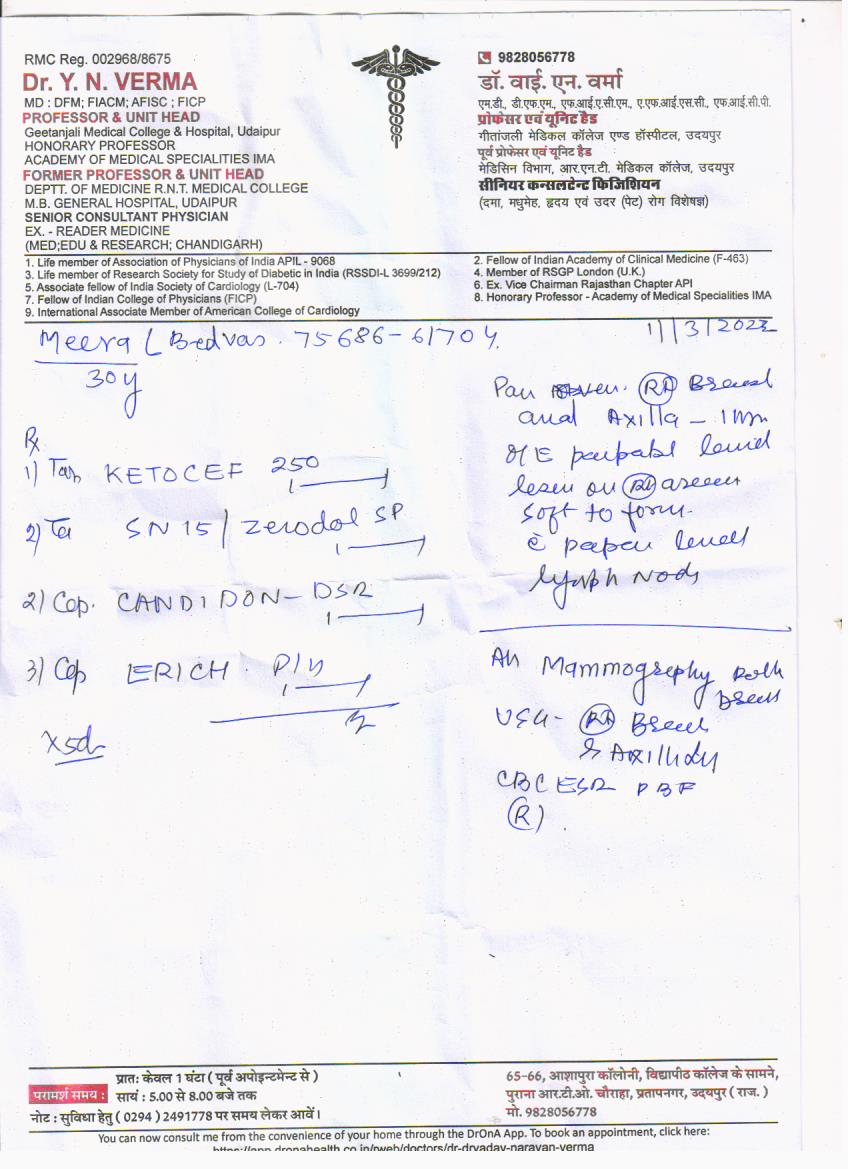 RMC Reg. 002968/8675
Dr. Y. N. VERMA
MD : DFM; FIACM; AFISC ; FICP
PROFESSOR & UNIT HEAD
Geetanjali Medical College & Hospital, Udaipur
HONORARY PROFESSOR
ACADEMY OF MEDICAL SPECIALITIES IMA
FORMER PROFESSOR & UNIT HEAD
DEPTT. OF MEDICINE R.N.T. MEDICAL COLLEGE
M.B. GENERAL HOSPITAL, UDAIPUR
SENIOR CONSULTANT PHYSICIAN
EX. - READER MEDICINE
(MED;EDU & RESEARCH; CHANDIGARH)
9828056778
डॉ. वाई. एन. वर्मा
एम.डी., डी.एफ.एम., एफ.आई.ए.सी.एम., ए.एफ.आई.एस.सी., एफ.आई.सी.पी.
प्रोफेसर एवं यूनिट हैड
गीतांजली मेडिकल कॉलेज एण्ड हॉस्पीटल, उदयपुर
पूर्व प्रोफेसर एवं यूनिट हैड
मेडिसिन विभाग, आर.एन.टी. मेडिकल कॉलेज, उदयपुर
सीनियर कन्सलटेन्ट फिजिशियन
(दमा, मधुमेह, हृदय एवं उदर (पेट) रोग विशेषज्ञ)
1. Life member of Association of Physicians of India APIL - 9068
2. Fellow of Indian Academy of Clinical Medicine (F-463)
3. Life member of Research Society for Study of Diabetic in India (RSSDI-L 3699/212)
4. Member of RSGP London (U.K.)
5. Associate fellow of India Society of Cardiology (L-704)
6. Ex. Vice Chairman Rajasthan Chapter API
7. Fellow of Indian College of Physicians (FICP)
8. Honorary Professor - Academy of Medical Specialities IMA
9. International Associate Member of American College of Cardiology
Meera ( Bedvas. 75686-61704
11/3/2023
30y
Rx
1) Tab KETOCEF 250
2) SN 15 / Zerodol SP
2) Cap. CANDIDON-DSR
3) Cap ERICH
Breast
and Axilla
O/E
on Rt
soft to
lymph Nods
Mammogrephy
USG- Rt Breast
& Axilla
CBC ESR PBF
(R)
परामर्श समय :
प्रातः केवल 1 घंटा ( पूर्व अपोइन्टमेन्ट से )
सायं : 5.00 से 8.00 बजे तक
नोट : सुविधा हेतु ( 0294 ) 2491778 पर समय लेकर आवें।
65-66, आशापुरा कॉलोनी, विद्यापीठ कॉलेज के सामने,
पुराना आर.टी.ओ. चौराहा, प्रतापनगर, उदयपुर ( राज. )
मो. 9828056778
You can now consult me from the convenience of your home through the DrOnA App. To book an appointment, click here:
https://app.dronahealth.co.in/pweb/doctors/dr-dryadav-narayan-verma